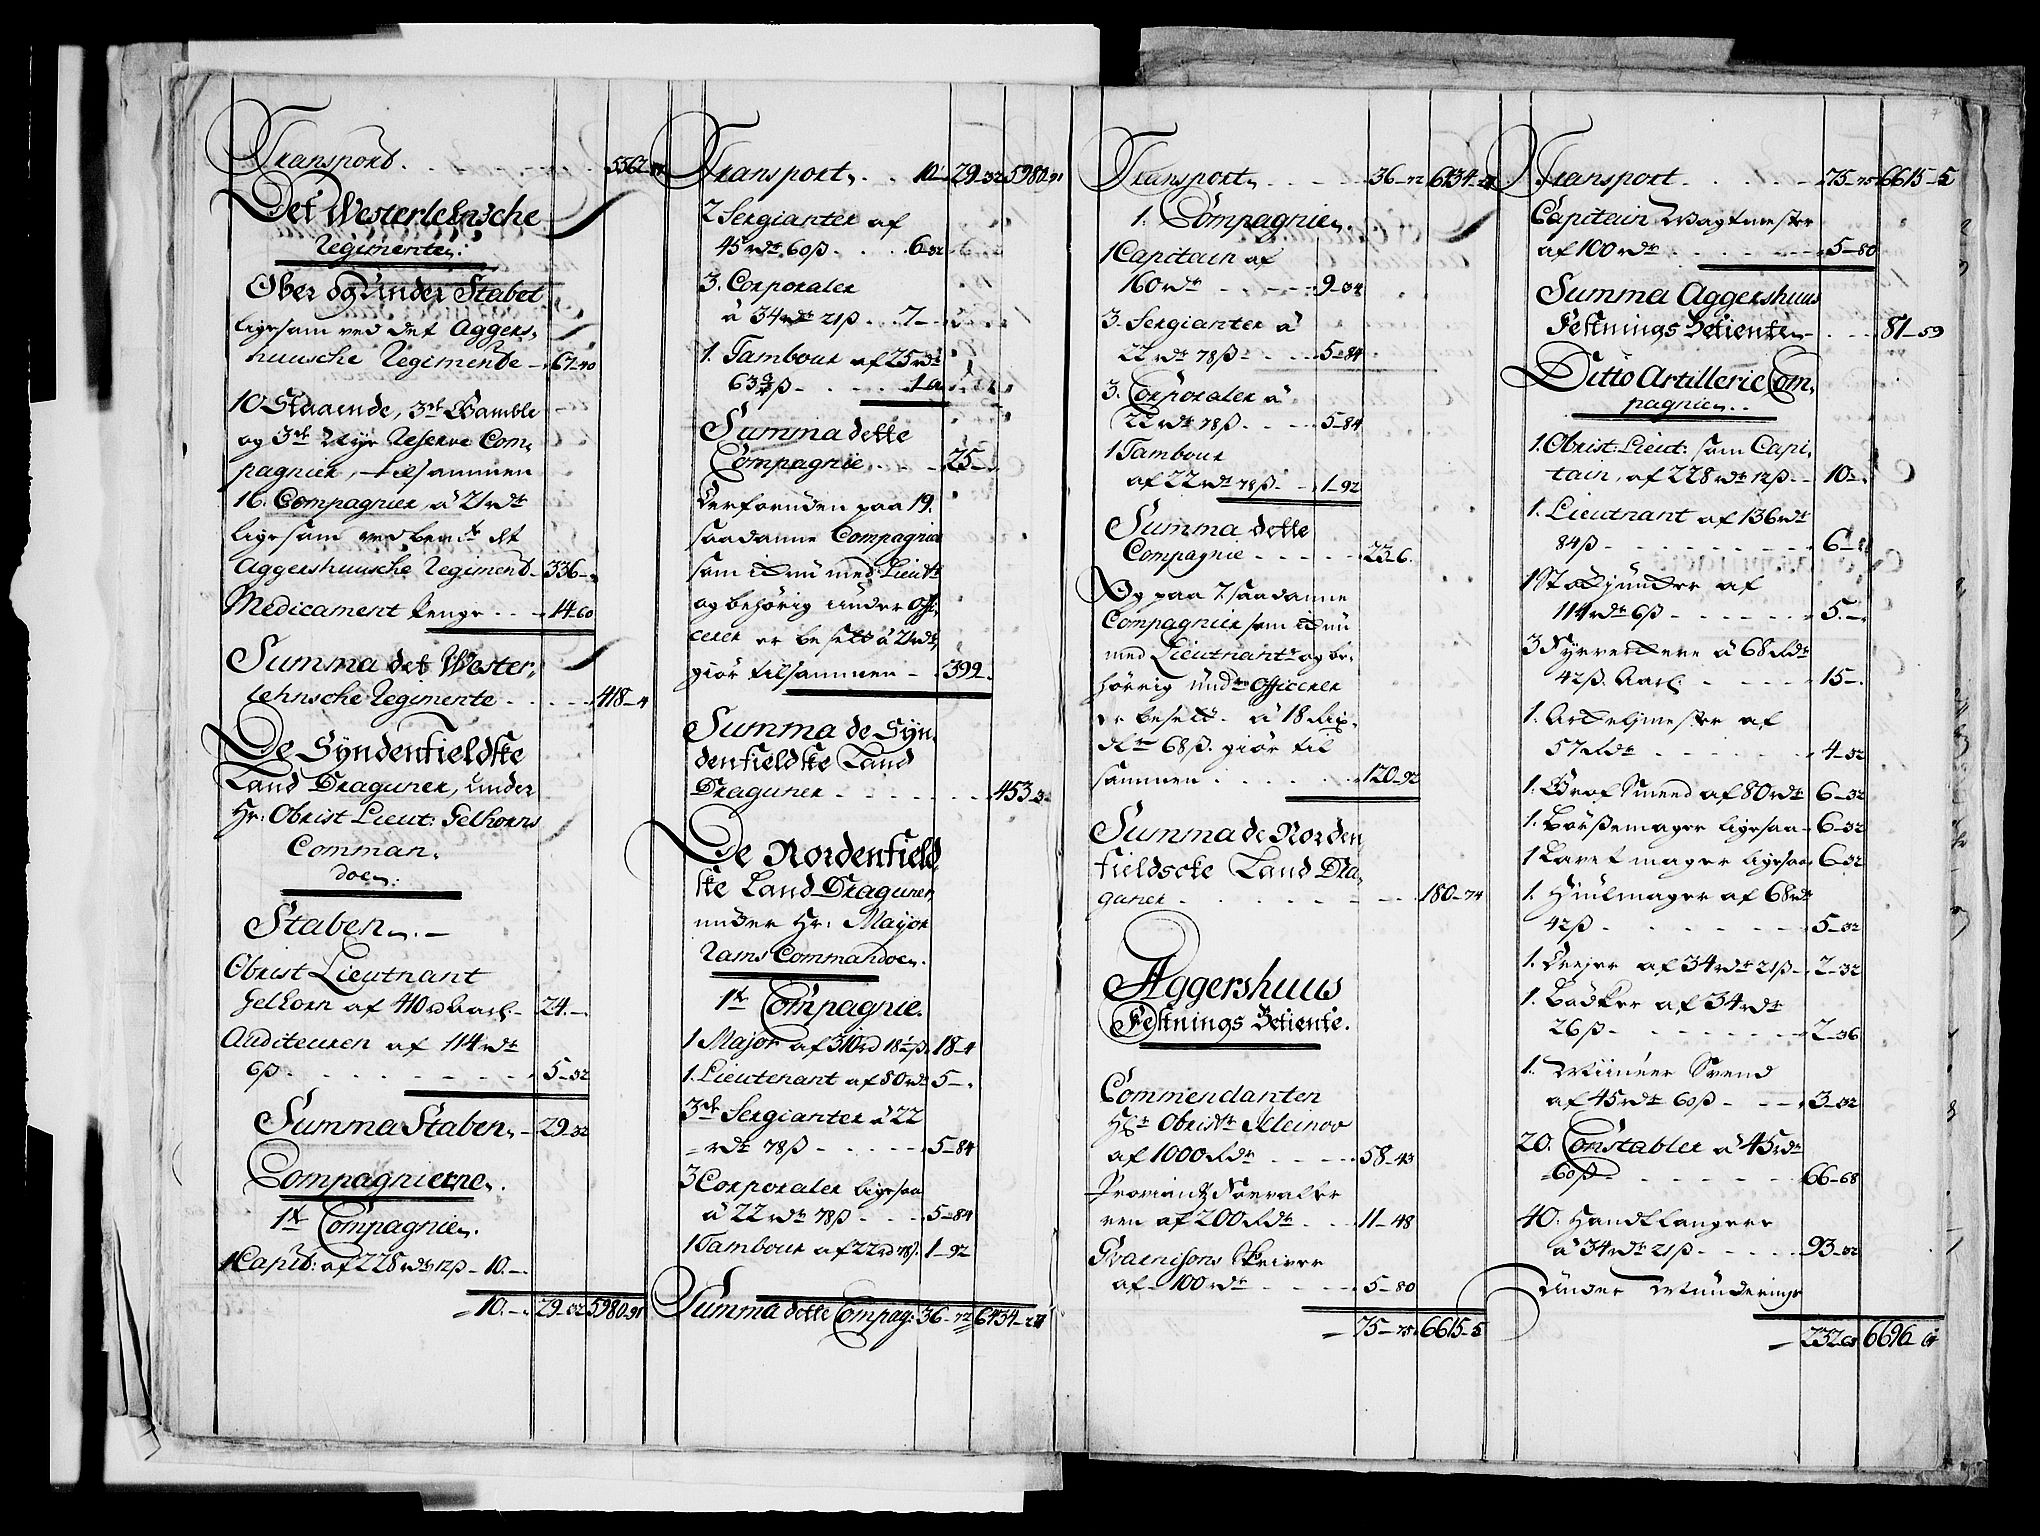 Transport. . . . . 5562-87
Det Westerlehnsche
Regimente:
Ober og Under Stabet
ligesom ved det Aggers,
huusche Regimente - 67-40
10 Staaende, 3de Gamble
og 3de Nye Reserve Com,
pagnier, tilsammen
16. Compagnier, á 21 rdr
ligesom ved bem.te det
Aggershuusche Regiment - 336-
Medicament Penge . . - 14-60
Summa det Wester,
lehnsche Regimente . . . . - 418-4
De Syndenfieldske
Land Draguner, under
Hr: Obrist Lieut: Gelhorns
Comman,
doe:
Staben. -
Obrist Lieutnant
Gelhorn af 410 rd Aarl. - 24.-
Auditeuren af 114 rdr
6ß. . . . . . . . - 5-32
Summa Staben - 29-32
Compagnierne.
1te Compagnie.
1 Capit: af 228 rdr 12ß - 10.-.
= 10.-. 29-32 5980-91
Transport . . 10-. 29-32 5980-91
2 Sergianter af
45 rdr 60ß . . . . 6-32
3. Corporaler
á 34 rdr 21ß . . 7-
1. Tambour af 25 rdr
63¾ß - . . . .
Summa dette
Compagnie. . . - 25-.
Derforuden paa 19.
saadanne Compagnier
som icke nu med Lieut.r
og behörig under Offi,
cerer er besatt á 21 rdr,
giör tilsammen - 399.
Summa de Syn,
denfieldske Land
Draguner - - - . . . . 453-32
De Nordenfield,
ske Land Draguner,
under Hr: Major
Rams Commandoe.
1te Compagnie.
1 Major af 310 rd 18½ß. 18-4
1. Lieutenant af 80 rdr 5-.
3de Sergianter á 22
= rdr 78ß - . . . . . 5-84
3 Corporaler ligesaa
á 22 rdr 78ß . . . - 5-84
1 Tambour af 22 rd 78ß. 1-92
Summa dette Compag: 36-72 6434-27
Transport. . . - - 36-72 6434-27
1. Compagnie.
1 Capitain af
160 rdr - - - - - 9-34
3. Sergianter á
22 rdr 78ß - . . . 5-84
3. Corporaler á
22 rdr 78ß. . . . 5-84
1 Tambour
af 22 rdr 78ß. . . 1-92
Summa dette
Compagnie - - - . . - 23-6.
Og paa 7. saadanne
Compagnier som icke nu
med Lieutnant.r og be,
hörrig Under Officerer
er besatt. á 18 Rix,
dlr 68ß. giör til
sammen . . . . . . 120-92
Summa de Norden
fieldscke Land Dra,
guner - . . . . . . - - 180-74
Aggershuus
Festnings Betiente.
Commendanten
Hr. Obrist.r Kleinov
af 1000 Rdr . . . - 58-43
Proviant Forvalter
ren af 200 Rdr. . . . 11-48
Gvarnisons Skriver
af 100 rdr - . . . . - 5-80
= 75-75 6615-5
Transport . . . . . - 75-75 6615-5
Capitain Vagtmester
af 100 rdr - . . . . - - 5-80
Summa Aggershuus
Festnings Betiente - . . . 81-59
Ditto Artillerie Com,
pagnie. .
1. Obrist. Lieut: som Capi,
tain, af 228 rdr 12ß . . 10-.
1. Lieutnant af 136 rdr
84ß - - - - - . . . . 6-
1 Stückjuncker af
114 rdr 6ß - - - - . . . 5.-.
3 Fyrverckere á 68 Rdr
42ß. Aarl. . . - - . . 15-.
1. Arckelymester af
57 Rdr - . . . . . . . 4-32
1. Grof Smeed af 80 rdr 6-32
1. Börßemager ligesaa - 6-32
1 Lavetmager ligesaa 6-32
1. Hiulmager af 68 rdr
42ß. . . . . . . . . 5-32
1. Drejer af 34 rdr 21ß - 2-32
1. Bödker af 34 rdr
26ß - . . . . . . . . 2-36
1. Minéer Svend
af 45 rdr 60ß - . . - - 3-32
20. Constabler á 45 rdr
= 60ß . . . . . . . . 66-68
40. Handtlangere
á 34 rdr 21ß . . . . . . 93-32
Under Munderings
= 232-68 6696-64